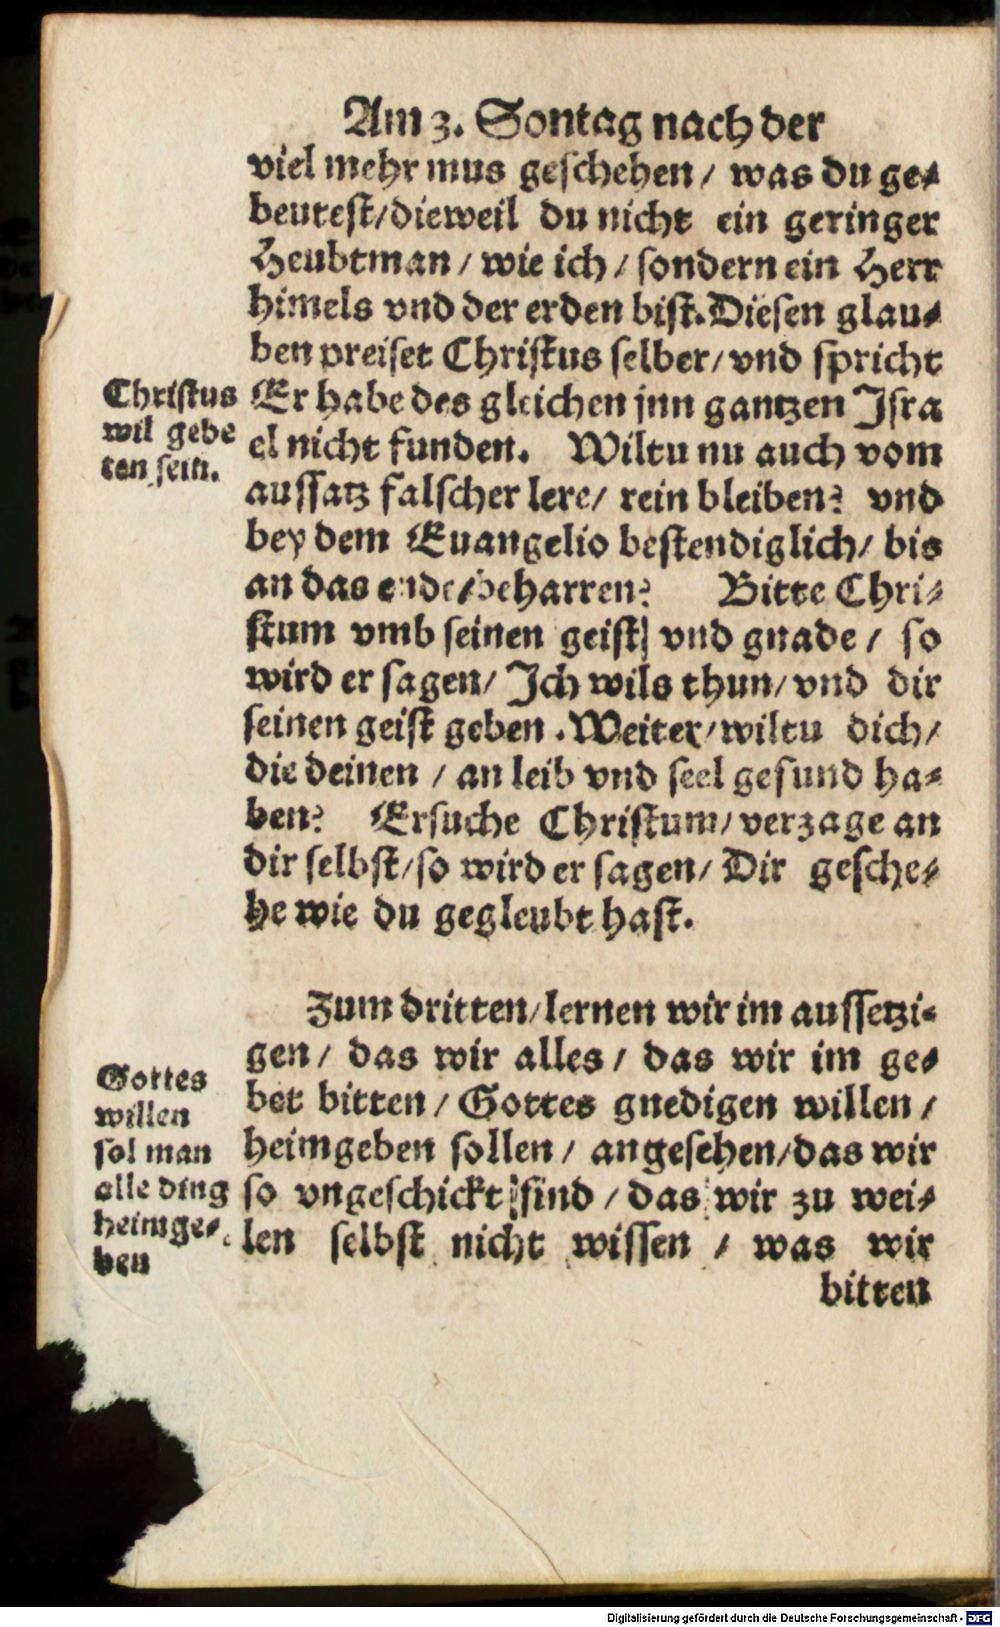 Am 3. Sontag nach der
viel mehr mus geschehen / was du ge-
beutest / dieweil du nicht ein geringer
Heubtman / wie ich / sondern ein Herr
himels vnd der erden bist. Diesen glau-
ben preiset Christus selber / vnd spricht
Er habe des gleichen jnn gantzen Isra
el nicht funden. Wiltu nu auch vom
aussatz falscher lere / rein bleiben? vnd
bey dem Euangelio bestendiglich / bis
an das ende / beharren? Bitte Chri-
stum vmb seinen geist vnd gnade / so
wird er sagen / Ich wils thun / vnd dir
seinen geist geben. Weiter / wiltu dich /
die deinen / an leib vnd seel gesund ha-
ben? Ersuche Christum / verzage an
dir selbst / so wird er sagen / Dir gesche-
he wie du gegleubt hast.
Christus
wil gebe
ten sein.
Zum dritten / lernen wir im aussetzi-
gen / das wir alles / das wir im ge-
bet bitten / Gottes gnedigen willen /
heimgeben sollen / angesehen / das wir
so vngeschickt sind / das wir zu wei-
len selbst nicht wissen / was wir
bitten
Gottes
willen
sol man
alle ding
heimge-
ben
Digitalisierung gefördert durch die Deutsche Forschungsgemeinschaft - DFG